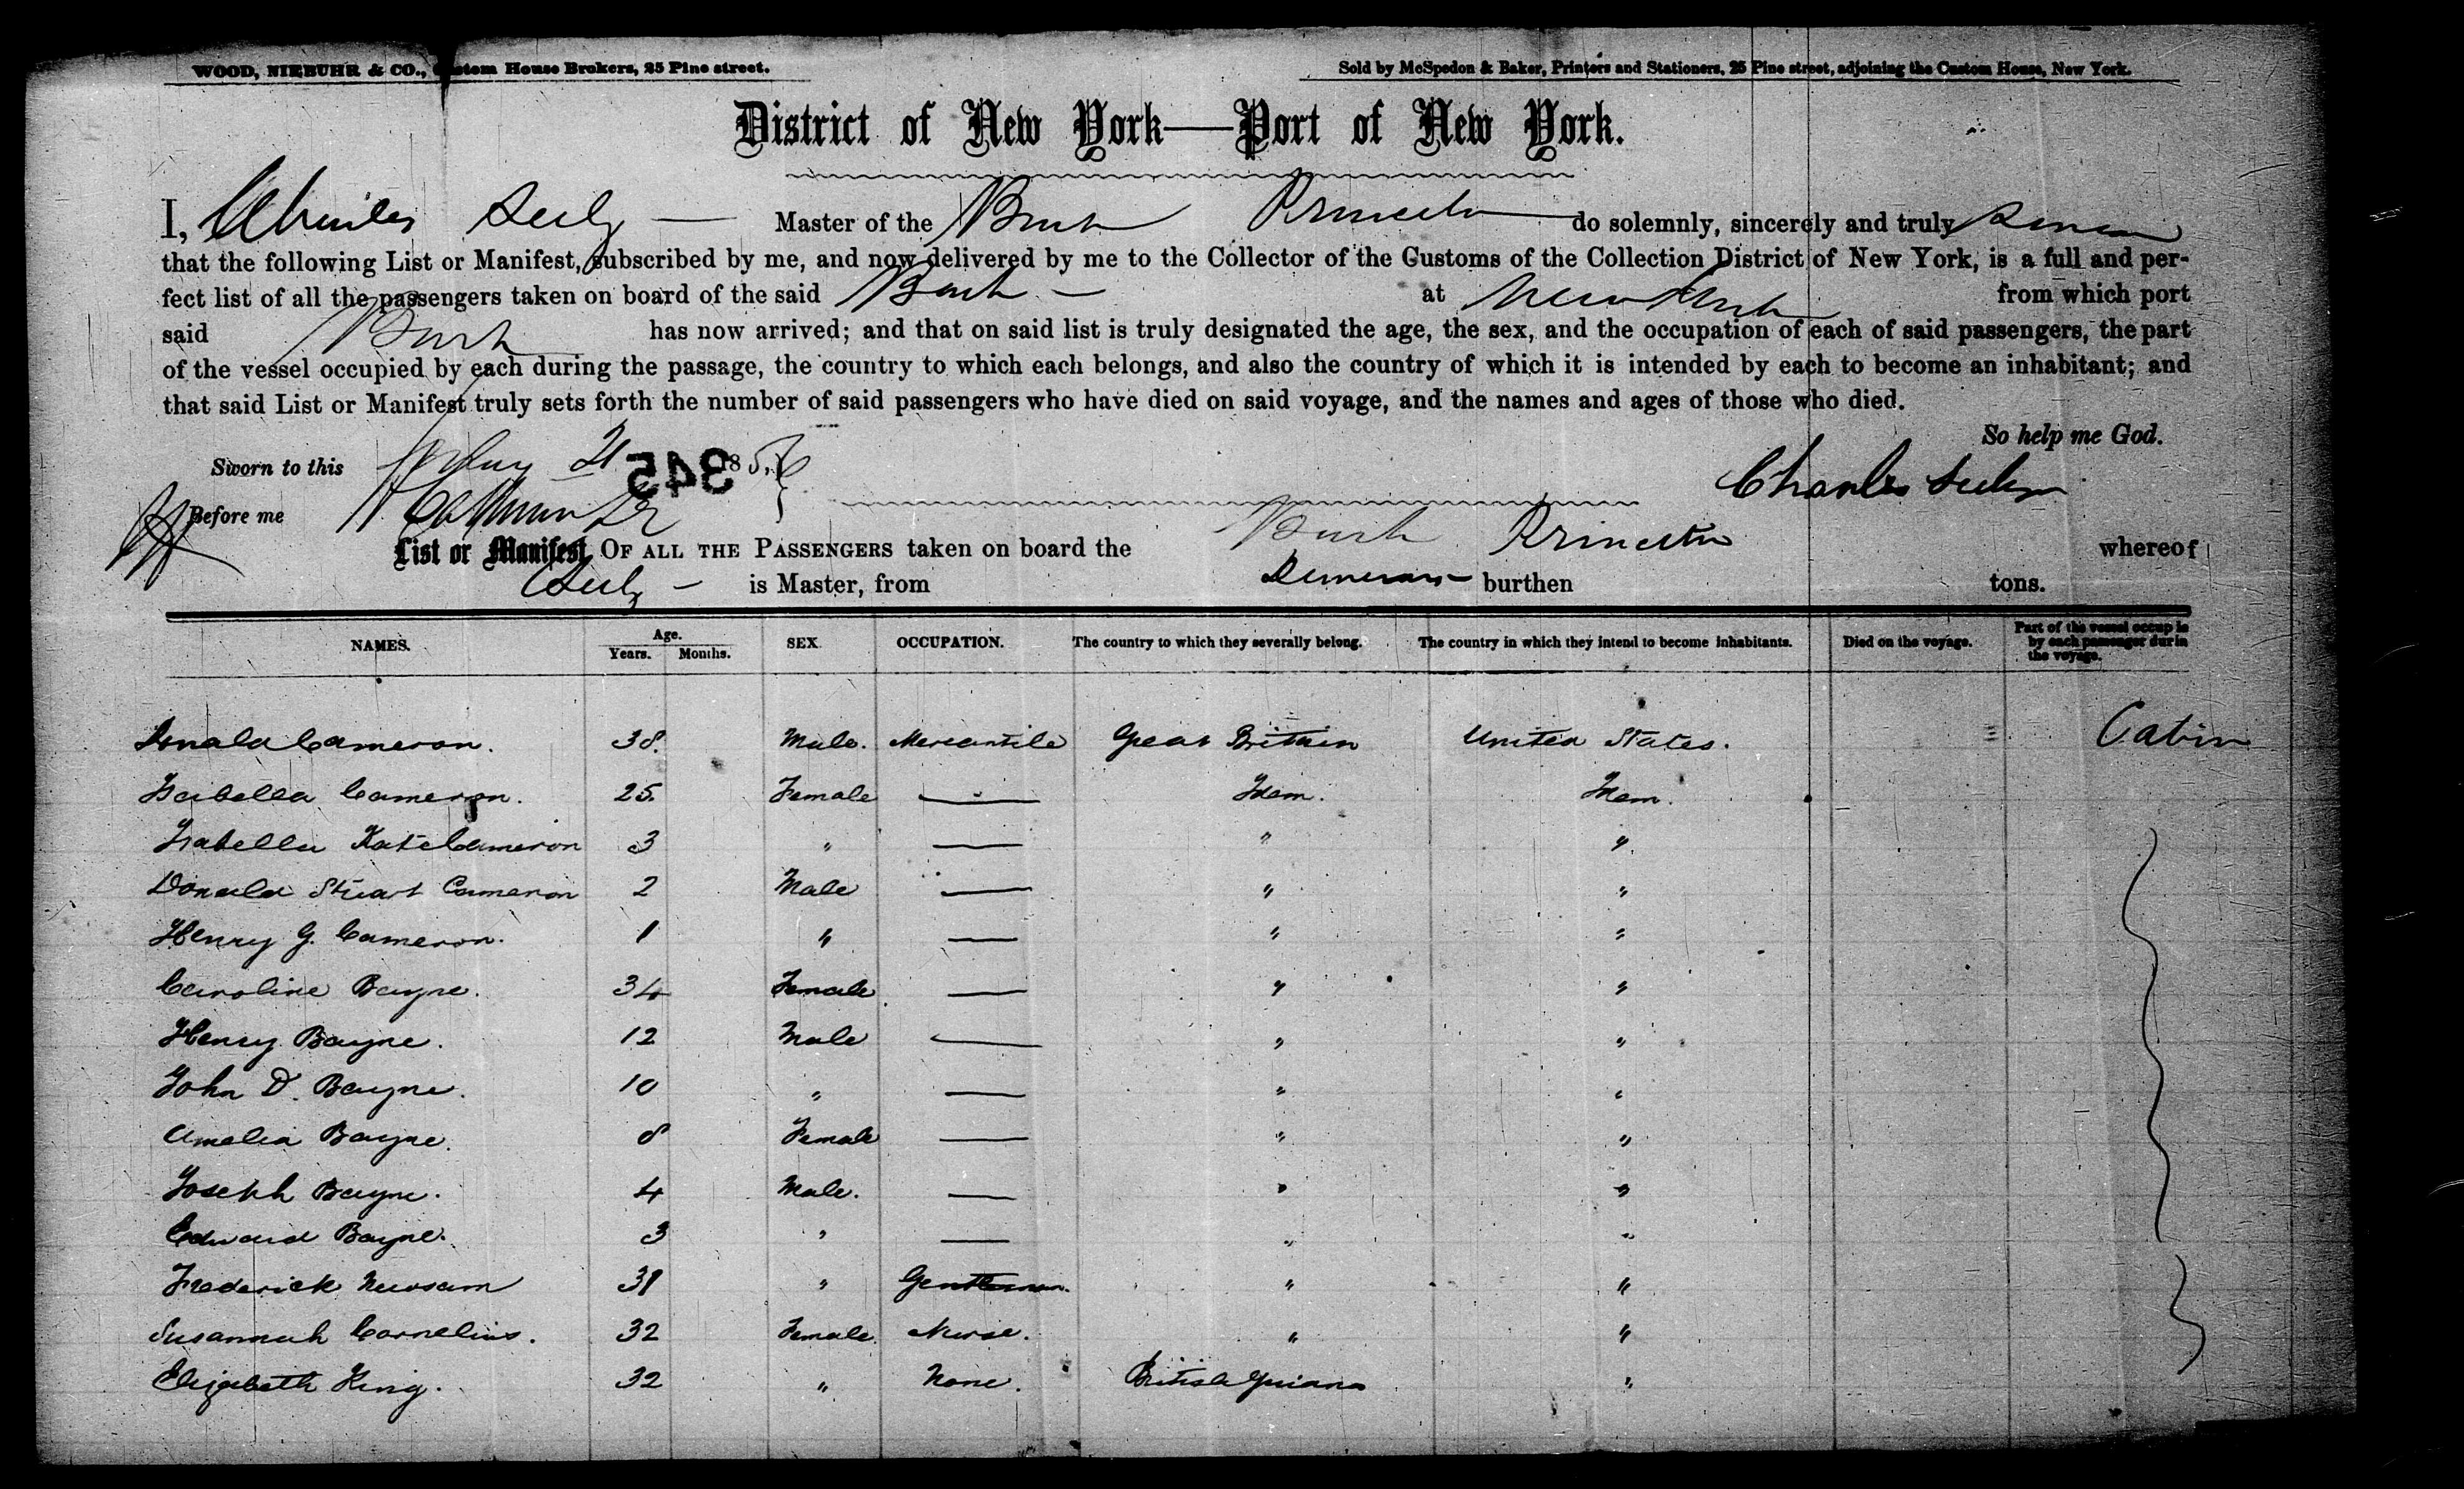 WOOD, NIEBUHR & CO., Custom House Brokers, 25 Pine street.
Sold by McSpedon & Baker, Printers and Stationers, 25 Pine street, adjoining the Custom House, New York.
District of New York—Port of New York.
I, Charles Seely — Master of the Bark Princeton do solemnly, sincerely and truly swear
that the following List or Manifest, subscribed by me, and now delivered by me to the Collector of the Customs of the Collection District of New York, is a full and per-
fect list of all the passengers taken on board of the said Bark — at New York from which port
said Bark has now arrived; and that on said list is truly designated the age, the sex, and the occupation of each of said passengers, the part
of the vessel occupied by each during the passage, the country to which each belongs, and also the country of which it is intended by each to become an inhabitant; and
that said List or Manifest truly sets forth the number of said passengers who have died on said voyage, and the names and ages of those who died.
So help me God.
Sworn to this May 21 345 185
Charles Seely
Before me
List or Manifest OF ALL THE PASSENGERS taken on board the Bark Princeton whereof
Seely — is Master, from Demerara burthen tons.
NAMES. Age. Years. Months. SEX. OCCUPATION. The country to which they severally belong. The country in which they intend to become inhabitants. Died on the voyage. Part of the vessel occupied by each passenger during the voyage.
Donald Cameron. 38. Male. Mercantile Great Britain United States. Cabin
Isabella Cameron. 25. Female — Idem. Idem.
Isabella Kate Cameron 3 " — " "
Donald Stuart Cameron 2 Male — " "
Henry G. Cameron. 1 " — " "
Caroline Bayne. 34 Female — " "
Henry Bayne. 12 Male — " "
John D. Bayne. 10 " — " "
Amelia Bayne. 8 Female — " "
Joseph Bayne. 4 Male. — " "
Edward Bayne. 3 " — " "
Frederick Newsam 31 " Gentleman. " "
Susannah Cornelius. 32 Female. Nurse. " "
Elizabeth King. 32 " None. British Guiana "